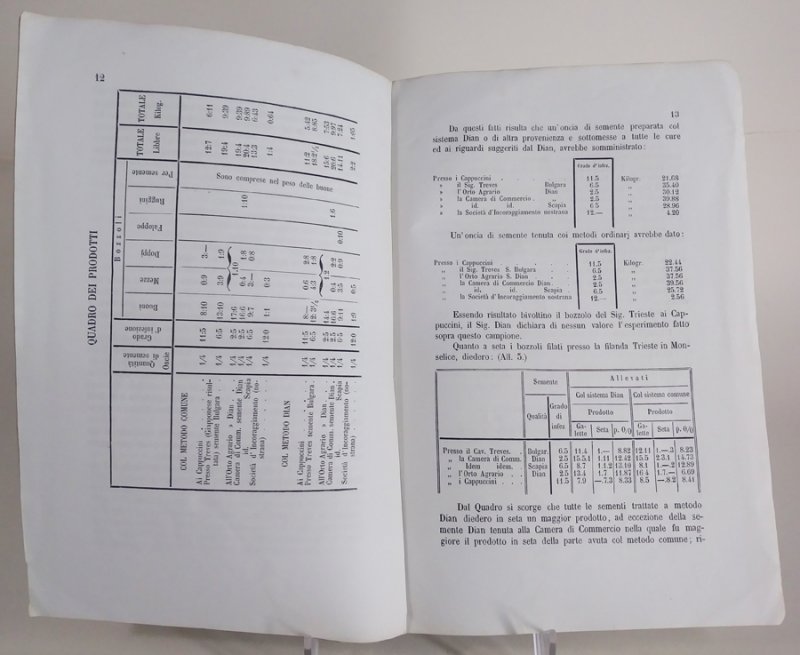 12
QUADRO DEI PRODOTTI
Quantità di semente Oncie
Grado d'infezione
Bozzoli
Buoni
Mezze
Doppj
Faloppe
Ruggini
Per semente
TOTALE Libbre
TOTALE Kilog.
COL METODO COMUNE
Ai Cappuccini 1/4 11:5 8:10 0:9 3.— 12:7 6:11
Presso Treves (Giapponese risul-
tata) semente Bulgara 1/4 6:5 13:10 3.9 1:9 19:4 9:39
All'Orto Agrario » Dian 1/4 2:5 17:6 1.10 19:4 9:39
Camera di Com. semente Dian 1/4 2:5 16:6 0.4 1:8 1:10 20:4 9:89
id. Scapia 1/4 6:5 9:7 3.— 0:8 13:3 6:43
Società d'Incoraggiamento (no-
strana) 1/4 12:0 1:1 0:3 1:4 0:64
Sono comprese nel peso delle buone
COL METODO DIAN
Ai Cappuccini 1/4 11:5 8:— 0:6 2:8 11:2 5:42
Presso Treves semente Bulgara 1/4 6:5 12:3½ 4:3 1:8 18:2½ 8:85
All'Orto Agrario » Dian 1/4 2:5 14:4 1.2 15:6 7:53
Camera di Comm. semente Dian 1/4 2:5 16:6 0.4 2:2 1:6 20:6 9:97
id. Scapia 1/4 6:5 9:11 3:5 0:9 0:10 14:11 7:24
Società d'Incoraggiamento (no-
strana) 1/4 12:0 1:9 0:5 2:2 1:05
13
Da questi fatti risulta che un'oncia di semente preparata col
sistema Dian o di altra provenienza e sottomesse a tutte le cure
ed ai riguardi suggeriti dal Dian, avrebbe somministrato:
Grado d'infez.
Presso i Cappuccini . . . 11.5 Kilogr. 21.68
» il Sig. Treves Bulgara 6.5 „ 35.40
» l'Orto Agrario Dian 2.5 „ 30.12
» la Camera di Commercio . „ 2.5 „ 39.88
» id. id. Scapia 6 5 „ 28.96
» la Società d'Incoraggiamento nostrana 12.— „ 4.20
Un'oncia di semente tenuta coi metodi ordinarj avrebbe dato:
Grado d'infez.
Presso i Cappuccini . . . 11.5 Kilogr. 22.44
„ il Sig. Treves S. Bulgara . 6.5 „ 37.56
„ l'Orto Agrario S. Dian . 2.5 „ 37.56
„ la Camera di Commercio Dian . 2.5 „ 39.56
„ id. id. Scapia . 6.5 „ 25.72
„ la Società d'Incoraggiamento nostrana 12.— „ 2.56
Essendo risultato bivoltino il bozzolo del Sig. Trieste ai Cap-
puccini, il Sig. Dian dichiara di nessun valore l'esperimento fatto
sopra questo campione.
Quanto a seta i bozzoli filati presso la filanda Trieste in Mon-
selice, diedero: (All. 5.)
Semente Allevati
Qualità Grado di infez Col sistema Dian Col sistema comune
Prodotto Prodotto
Ga-lette Seta p. 0/0 Ga-lette Seta p. 0/0
Presso il Cav. Treves. . Bulgar. 6.5 11.4 1.— 8.82 12.11 1.—.3 8.23
„ la Camera di Comm. Dian 2.5 15.5.1 1.11 12.42 15.5 2.3.1 14.73
„ Idem idem. Scapia 6.5 8.7 1.1.2 13.19 8.1 1.—.2 12.89
„ l'Orto Agrario . . Dian 2.5 13.4 1.7 11.87 16.4 1.7.— 6.69
„ i Cappuccini . . 11.5 7.9 —.7.3 8.33 8.5 —.8.2 8.41
Dal Quadro si scorge che tutte le sementi trattate a metodo
Dian diedero in seta un maggior prodotto, ad eccezione della se-
mente Dian tenuta alla Camera di Commercio nella quale fu mag-
giore il prodotto in seta della parte avuta col metodo comune; ri-